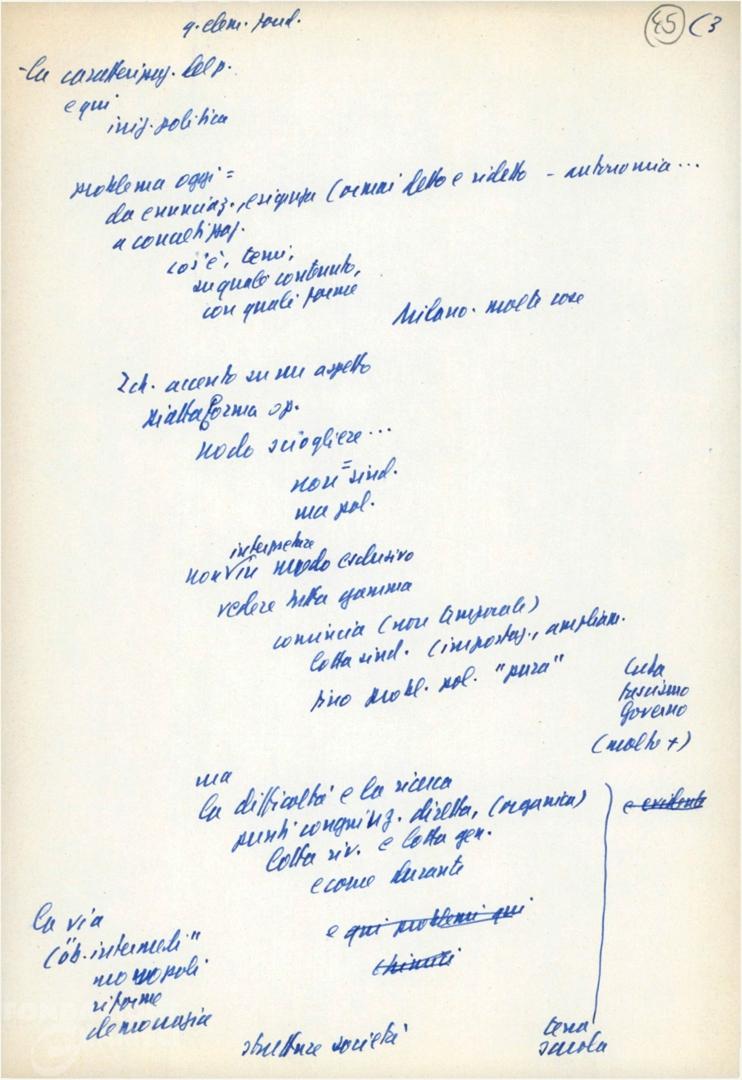 q. elem. fond.
45 (3
- la caratterizzaz. del p.
e qui
iniz. politica
problema oggi =
da enunciaz., esigenza (ormai detto e ridetto - autonomia...
a concretizzaz.
cos'è, temi,
su quale contenuto,
con quali forme
Milano. molte cose
accento su un aspetto
piattaforma op.
nodo sciogliere...
non = sind.
ma pol.
interpretare
non in modo esclusivo
vedere tutta gamma
comincia (non temporale)
lotta sind. (impostaz., ampliam.
sino probl. pol. "pura"
Cuba
fascismo
Governo
(molto +)
ma
la difficoltà e la ricerca
punti congiunz. diretta, (organica)
e evidente
lotta riv. e lotta gen.
e come durante
la via
e qui problemi qui
("ob. intermedi"
chimici
monopoli
riforme
democrazia
strutture società
terra
scuola